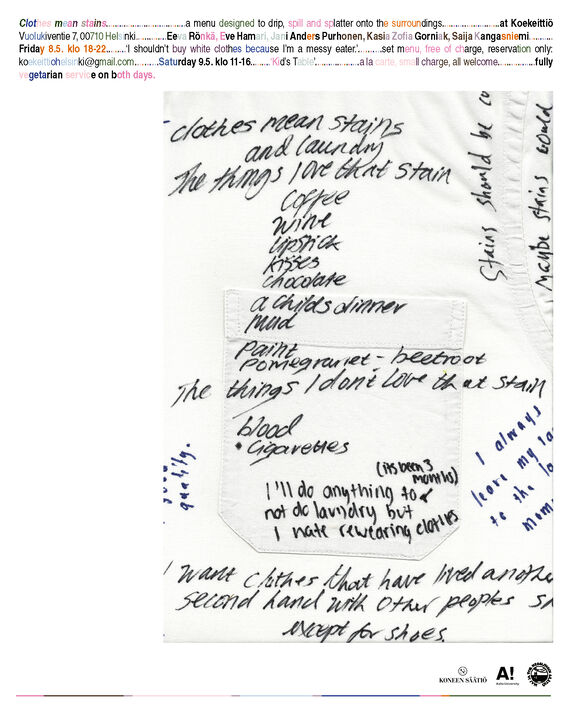 Clothes mean stains..........................a menu designed to drip, spill and splatter onto the surroundings....................at Koekeittiö
Vuolukiventie 7, 00710 Helsinki..............Eeva Rönkä, Eve Hamari, Jani Anders Purhonen, Kasia Zofia Gorniak, Saija Kangasniemi..................
Friday 8.5. klo 18-22.........'I shouldn't buy white clothes because I'm a messy eater.'..........set menu, free of charge, reservation only:
koekeittiohelsinki@gmail.com...........Saturday 9.5. klo 11-16.........'Kid's Table'................a la carte, small charge, all welcome............fully
vegetarian service on both days.
clothes mean stains
and laundry
The things I love that stain
coffee
wine
lipstick
kisses
chocolate
a childs dinner
mud
paint
pomegranet - beetroot
The things I don't love that stain
blood
• cigarettes
(its been 3
months)
I'll do anything to
not do laundry but
I hate rewearing clothes
I want clothes that have lived another
second hand with other peoples
except for shoes
Stains should be
Maybe stains would
quality.
I always
leave my
to the
KONEEN SÄÄTIÖ
A!
Aalto University